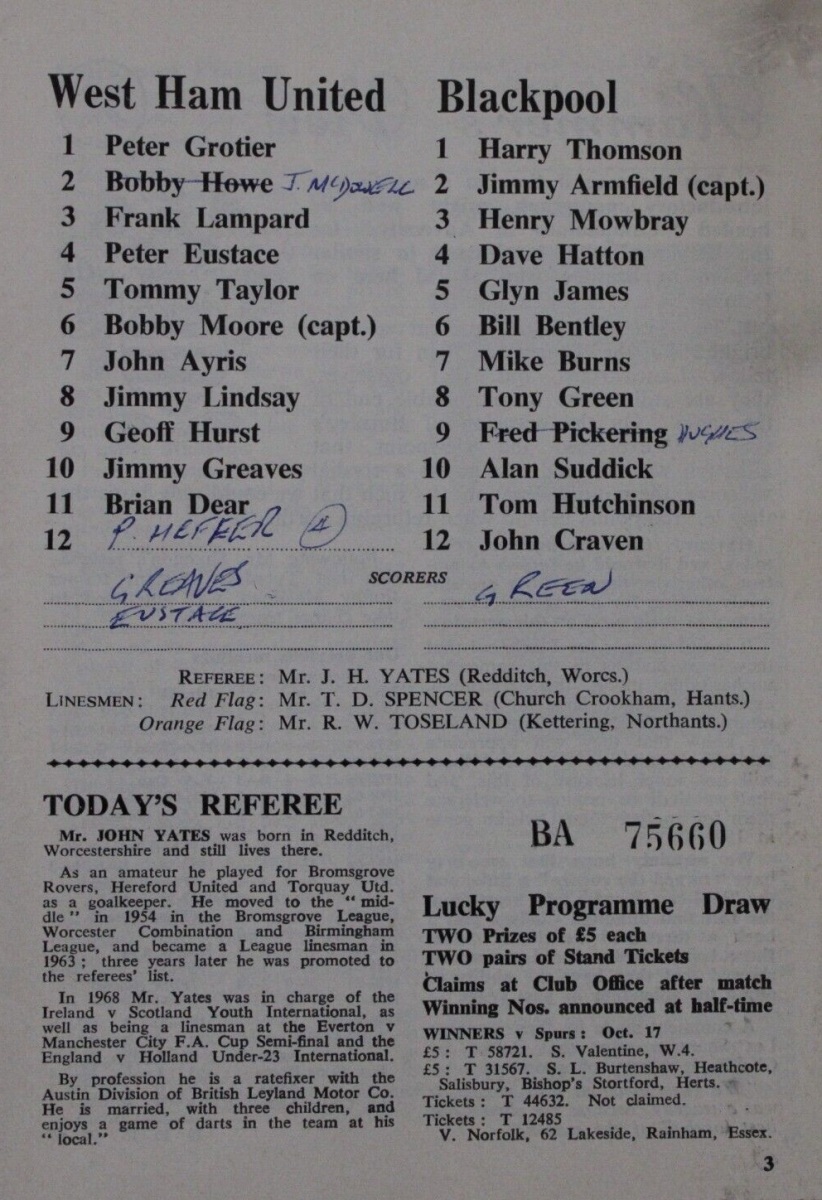 West Ham United
1 Peter Grotier
2 Bobby Howe J. McDOWELL
3 Frank Lampard
4 Peter Eustace
5 Tommy Taylor
6 Bobby Moore (capt.)
7 John Ayris
8 Jimmy Lindsay
9 Geoff Hurst
10 Jimmy Greaves
11 Brian Dear
12 P. HEFFER (4)
Blackpool
1 Harry Thomson
2 Jimmy Armfield (capt.)
3 Henry Mowbray
4 Dave Hatton
5 Glyn James
6 Bill Bentley
7 Mike Burns
8 Tony Green
9 Fred Pickering HUGHES
10 Alan Suddick
11 Tom Hutchinson
12 John Craven
SCORERS
GREAVES
EUSTACE
GREEN
REFEREE: Mr. J. H. YATES (Redditch, Worcs.)
LINESMEN: Red Flag: Mr. T. D. SPENCER (Church Crookham, Hants.)
Orange Flag: Mr. R. W. TOSELAND (Kettering, Northants.)
TODAY'S REFEREE
Mr. JOHN YATES was born in Redditch,
Worcestershire and still lives there.
As an amateur he played for Bromsgrove
Rovers, Hereford United and Torquay Utd.
as a goalkeeper. He moved to the "mid-
dle" in 1954 in the Bromsgrove League,
Worcester Combination and Birmingham
League, and became a League linesman in
1963; three years later he was promoted to
the referees' list.
In 1968 Mr. Yates was in charge of the
Ireland v Scotland Youth International, as
well as being a linesman at the Everton v
Manchester City F.A. Cup Semi-final and the
England v Holland Under-23 International.
By profession he is a ratefixer with the
Austin Division of British Leyland Motor Co.
He is married, with three children, and
enjoys a game of darts in the team at his
"local."
BA 75660
Lucky Programme Draw
TWO Prizes of £5 each
TWO pairs of Stand Tickets
Claims at Club Office after match
Winning Nos. announced at half-time
WINNERS v Spurs: Oct. 17
£5: T 58721. S. Valentine, W.4.
£5: T 31567. S. L. Burtenshaw, Heathcote,
Salisbury, Bishop's Stortford, Herts.
Tickets: T 44632. Not claimed.
Tickets: T 12485
V. Norfolk, 62 Lakeside, Rainham, Essex.
3